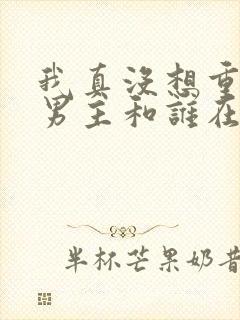 我真沒想重
男主和誰在
半杯芒果奶昔